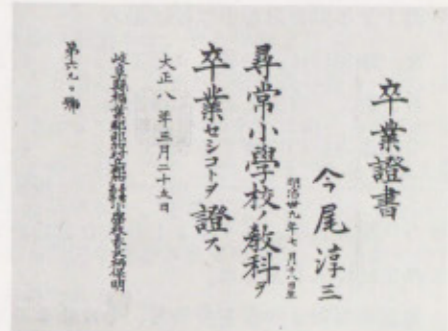 卒業證書
今尾淳三
明治卅九年七月十八日生
尋常小學校ノ教科ヲ
卒業セシコトヲ證ス
大正八年三月二十五日
岐阜縣稲葉郡那加村
第六九〇號